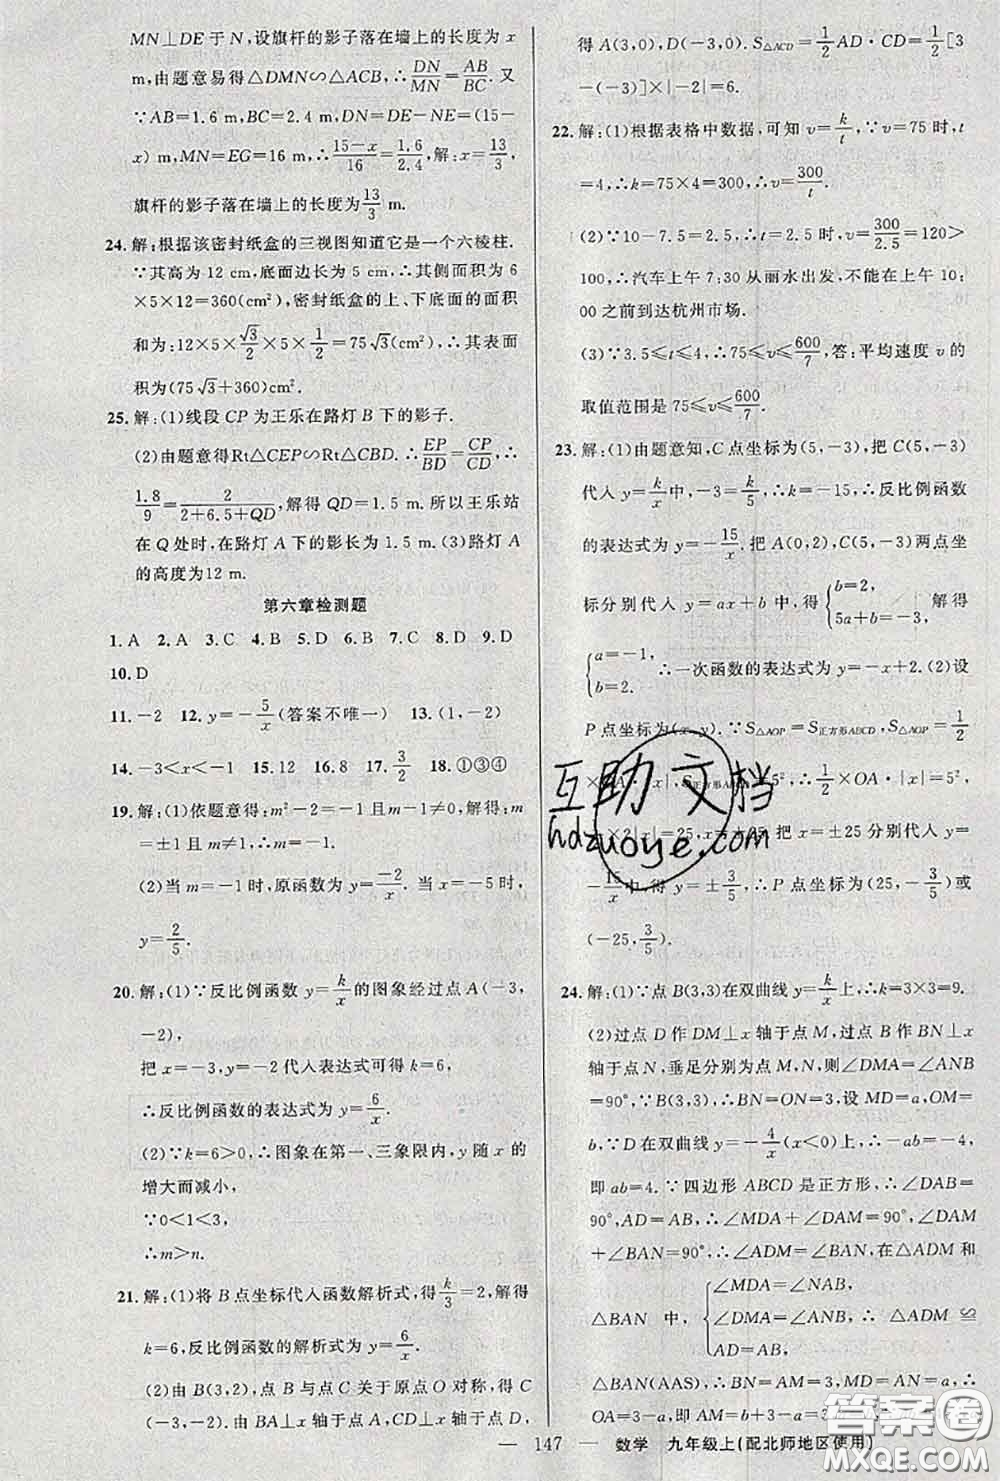 MN⊥DE于N,设旗杆的影子落在墙上的长度为x
m,由题意易得△DMN∽△ACB,∴DN/MN=AB/BC.又
∵AB=1.6 m,BC=2.4 m,DN=DE-NE=(15-
x) m,MN=EG=16 m,∴(15-x)/16=1.6/2.4,解:x=13/3,
旗杆的影子落在墙上的长度为13/3 m.
24.解:根据该密封纸盒的三视图知道它是一个六棱柱.
∵其高为12 cm,底面边长为5 cm,∴其侧面积为6
×5×12=360(cm²),密封纸盒的上、下底面的面积
和为:12×5×√3/2×5×1/2=75√3(cm²),∴其表面
积为(75√3+360)cm².
25.解:(1)线段CP为王乐在路灯B下的影子.
(2)由题意得Rt△CEP∽Rt△CBD.∴EP/BD=CP/CD,∴
1.8/9=2/(2+6.5+QD),解得QD=1.5 m.所以王乐站
在Q处时,在路灯A下的影长为1.5 m.(3)路灯A
的高度为12 m.
第六章检测题
1.A 2.A 3.C 4.B 5.D 6.B 7.C 8.D 9.D
10.D
11.-2 12.y=-5/x(答案不唯一) 13.(1,-2)
14.-3<x<-1 15.12 16.8 17.3/2 18.①③④
19.解:(1)依题意得:m²-2=-1且m-1≠0 解得:m
=±1且m≠1,∴m=-1.
(2)当m=-1时,原函数为y=-2/x.当x=-5时,
y=2/5.
20.解:(1)∵反比例函数y=k/x的图象经过点A(-3,
-2),
把x=-3,y=-2代入表达式可得k=6,
∴反比例函数的表达式为y=6/x.
(2)∵k=6>0,∴图象在第一、三象限内,y随x的
增大而减小,
∵0<1<3,
∴m>n.
21.解:(1)将B点坐标代入函数解析式,得k/3=2,解得
k=6,反比例函数的解析式为y=6/x.
(2)由B(3,2),点B与点C关于原点O对称,得C
(-3,-2).由BA⊥x轴于点A,CD⊥x轴于点D,
得A(3,0),D(-3,0).S△ACD=1/2AD·CD=1/2[3
-(-3)]×|-2|=6.
22.解:(1)根据表格中数据,可知v=k/t,∵v=75时,t
=4,∴k=75×4=300,∴v=300/t.
(2)∵10-7.5=2.5,∴t=2.5时,v=300/2.5=120>
100,∴汽车上午7:30从丽水出发,不能在上午10:
00之前到达杭州市场.
(3)∵3.5≤t≤4,∴75≤v≤600/7,答:平均速度v的
取值范围是75≤v≤600/7.
23.解:(1)由题意知,C点坐标为(5,-3),把C(5,-3)
代入y=k/x中,-3=k/5,∴k=-15,∴反比例函数
的表达式为y=-15/x.把A(0,2),C(5,-3)两点坐
标分别代入y=ax+b中,得{b=2, 5a+b=-3 解得
{a=-1, b=2. ∴一次函数的表达式为y=-x+2.(2)设
P点坐标为(x,y).∵S△AOP=S正方形ABCD,S△AOP=1/2
×OA·|x|,S正方形ABCD=5²,∴1/2×OA·|x|=5²,
×2|x|=25,x=±25.把x=±25分别代入y=
-15/x中,得y=±3/5,∴P点坐标为(25,-3/5)或
(-25,3/5).
24.解:(1)∵点B(3,3)在双曲线y=k/x上,∴k=3×3=9.
(2)过点D作DM⊥x轴于点M,过点B作BN⊥x
轴于点N,垂足分别为点M,N,则∠DMA=∠ANB
=90°,∵B(3,3),∴BN=ON=3,设MD=a,OM=
b,∵D在双曲线y=-4/x(x<0)上,∴-ab=-4,
即ab=4.∵四边形ABCD是正方形,∴∠DAB=
90°,AD=AB,∴∠MDA+∠DAM=90°,∠DAM
+∠BAN=90°,∴∠MDA=∠BAN,在△ADM和
△BAN中,{∠MDA=∠NAB, ∠DMA=∠ANB, AD=AB, ∴△ADM≌
△BAN(AAS),∴BN=AM=3,MD=AN=a,∴
OA=3-a,
147 数学 九年级上(配北师地区使用)
互助文档
hdzuoye.com
答案圈